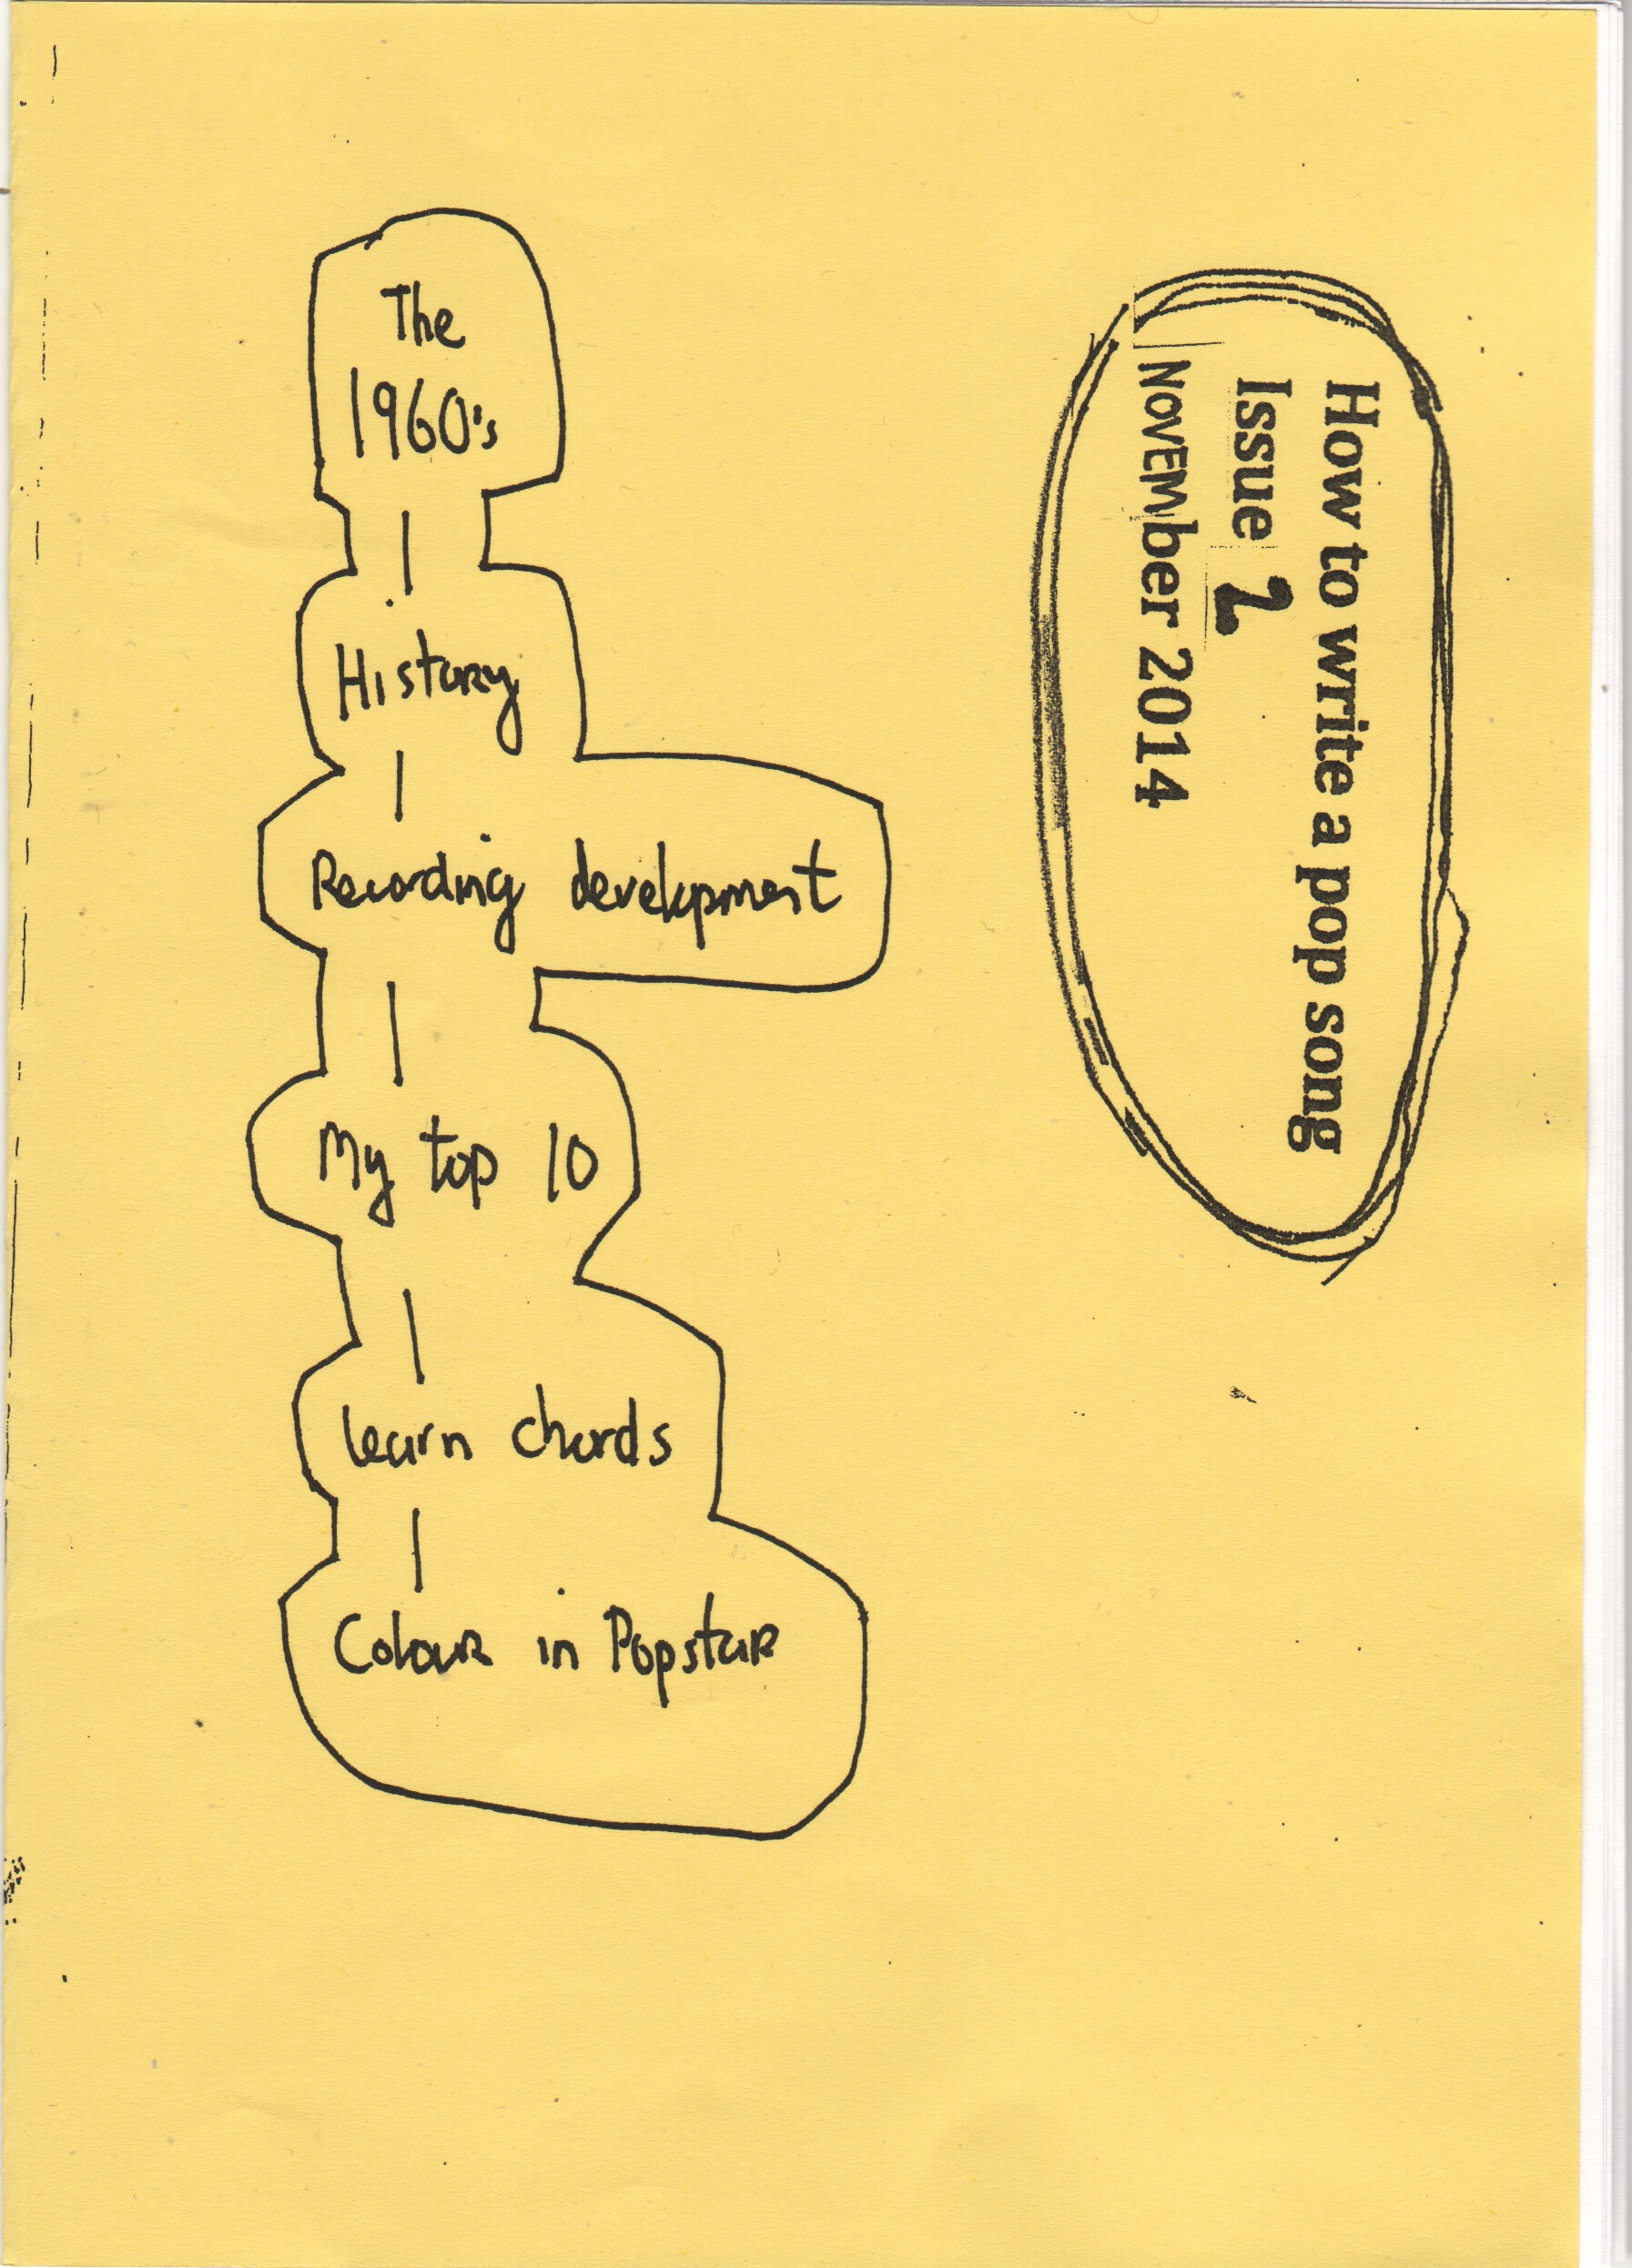 The
1960's
History
Recording development
My top 10
learn chords
Colour in Popstar
How to write a pop song
Issue 2
NOVEMber 2014